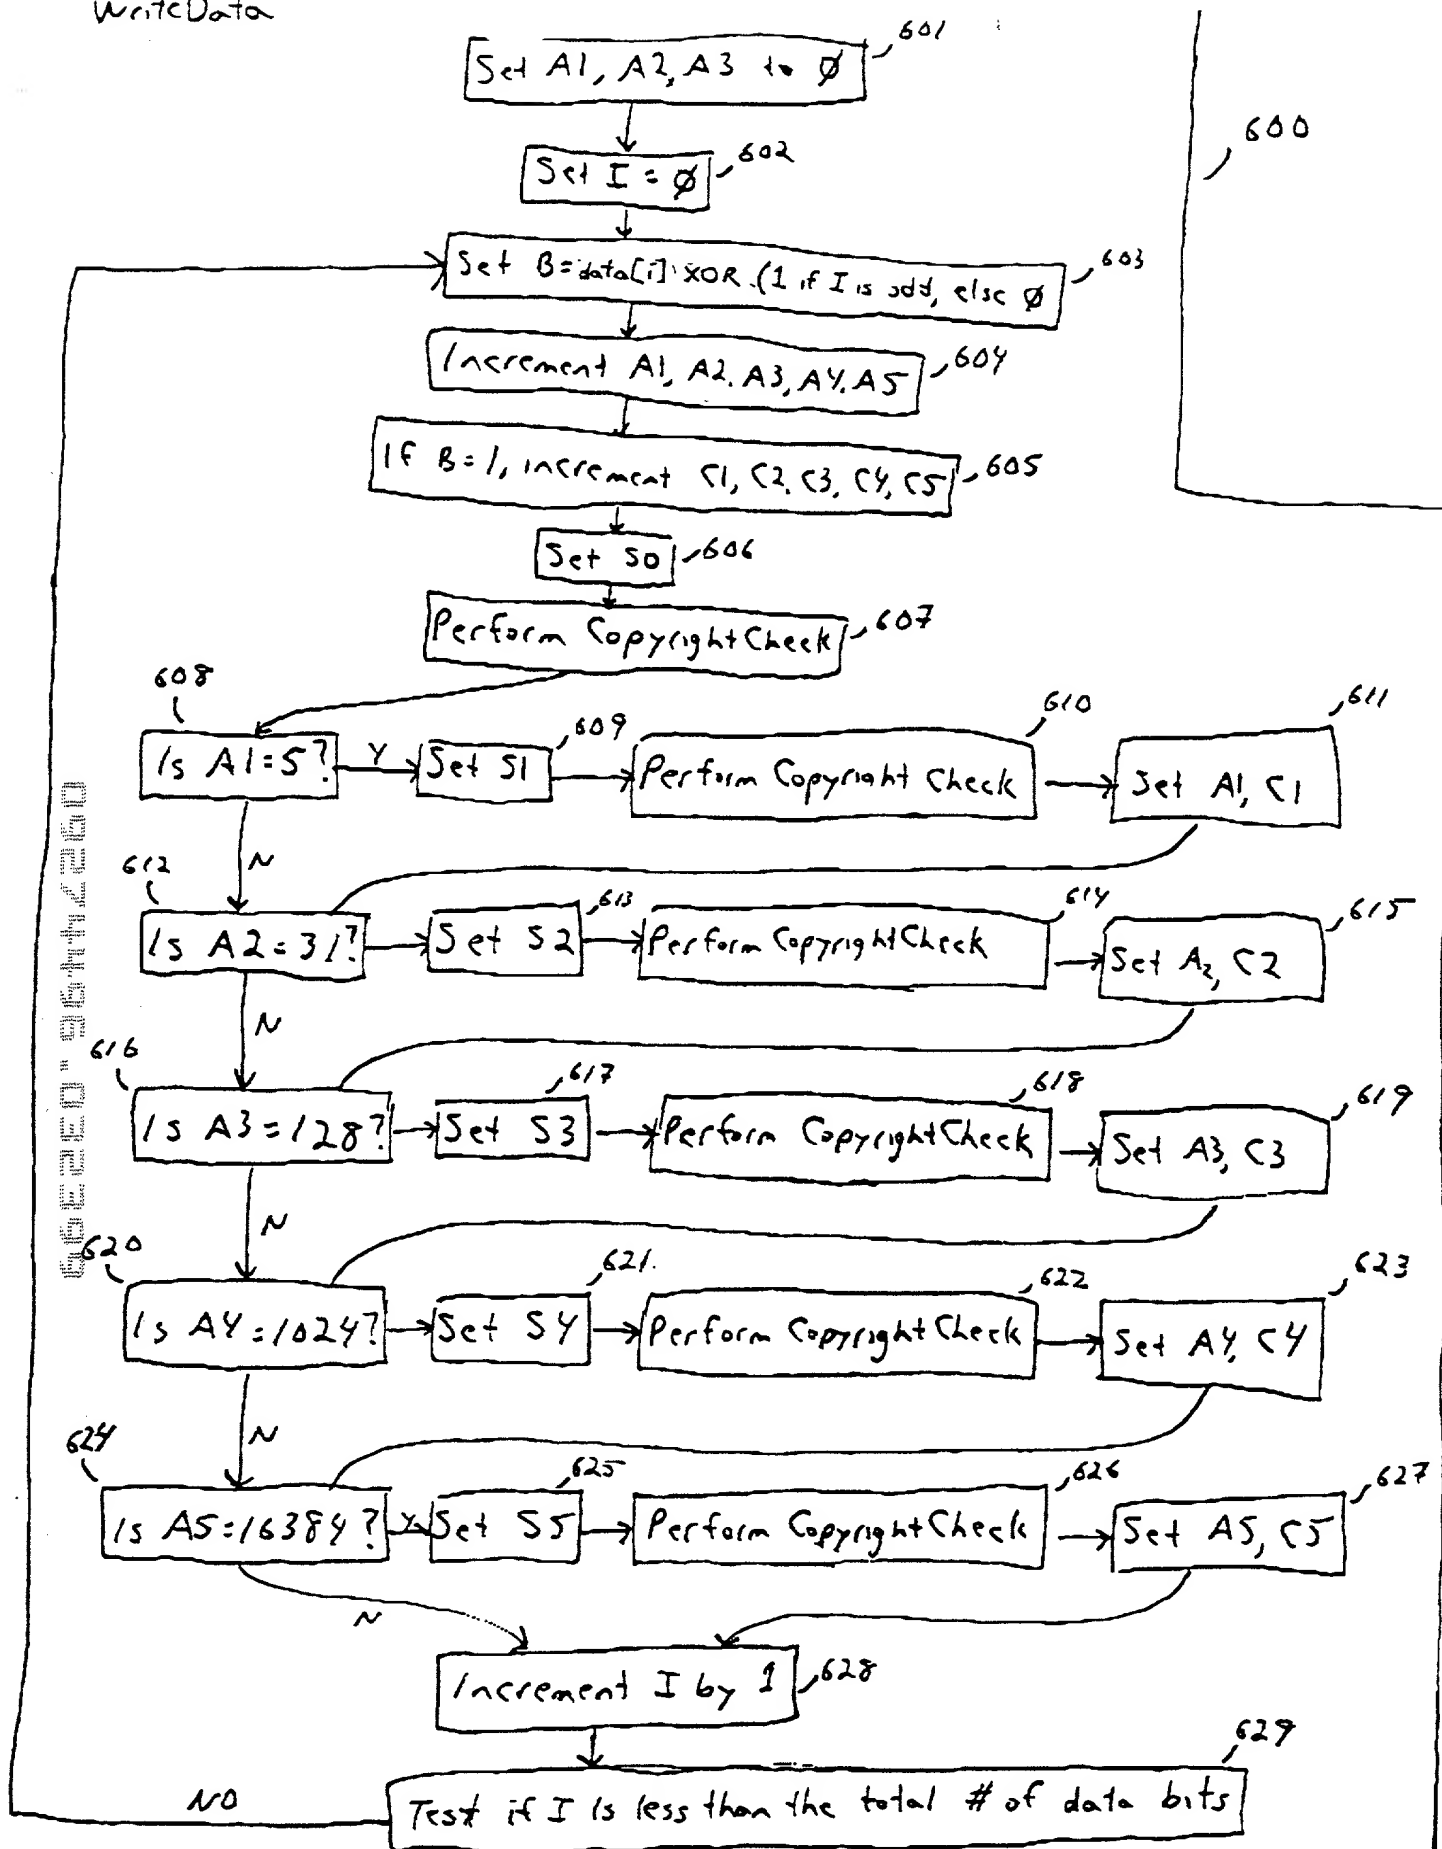 WriteData
Set A1, A2, A3 to Ø
601
600
Set I = Ø
602
Set B=data[i] XOR (1 if I is odd, else Ø
603
Increment A1, A2, A3, A4, A5
604
If B=1, increment C1, C2, C3, C4, C5
605
Set S0
606
Perform CopyrightCheck
607
608
Is A1=5?
Y
Set S1
609
Perform Copyright Check
610
Set A1, C1
611
N
612
Is A2=31?
Set S2
613
Perform CopyrightCheck
614
Set A2, C2
615
N
616
Is A3=128?
Set S3
617
Perform CopyrightCheck
618
Set A3, C3
619
N
620
Is A4=1024?
Set S4
621
Perform CopyrightCheck
622
Set A4, C4
623
N
624
Is A5=16384?
Y
Set S5
625
Perform CopyrightCheck
626
Set A5, C5
627
N
Increment I by 1
628
629
NO
Test if I is less than the total # of data bits